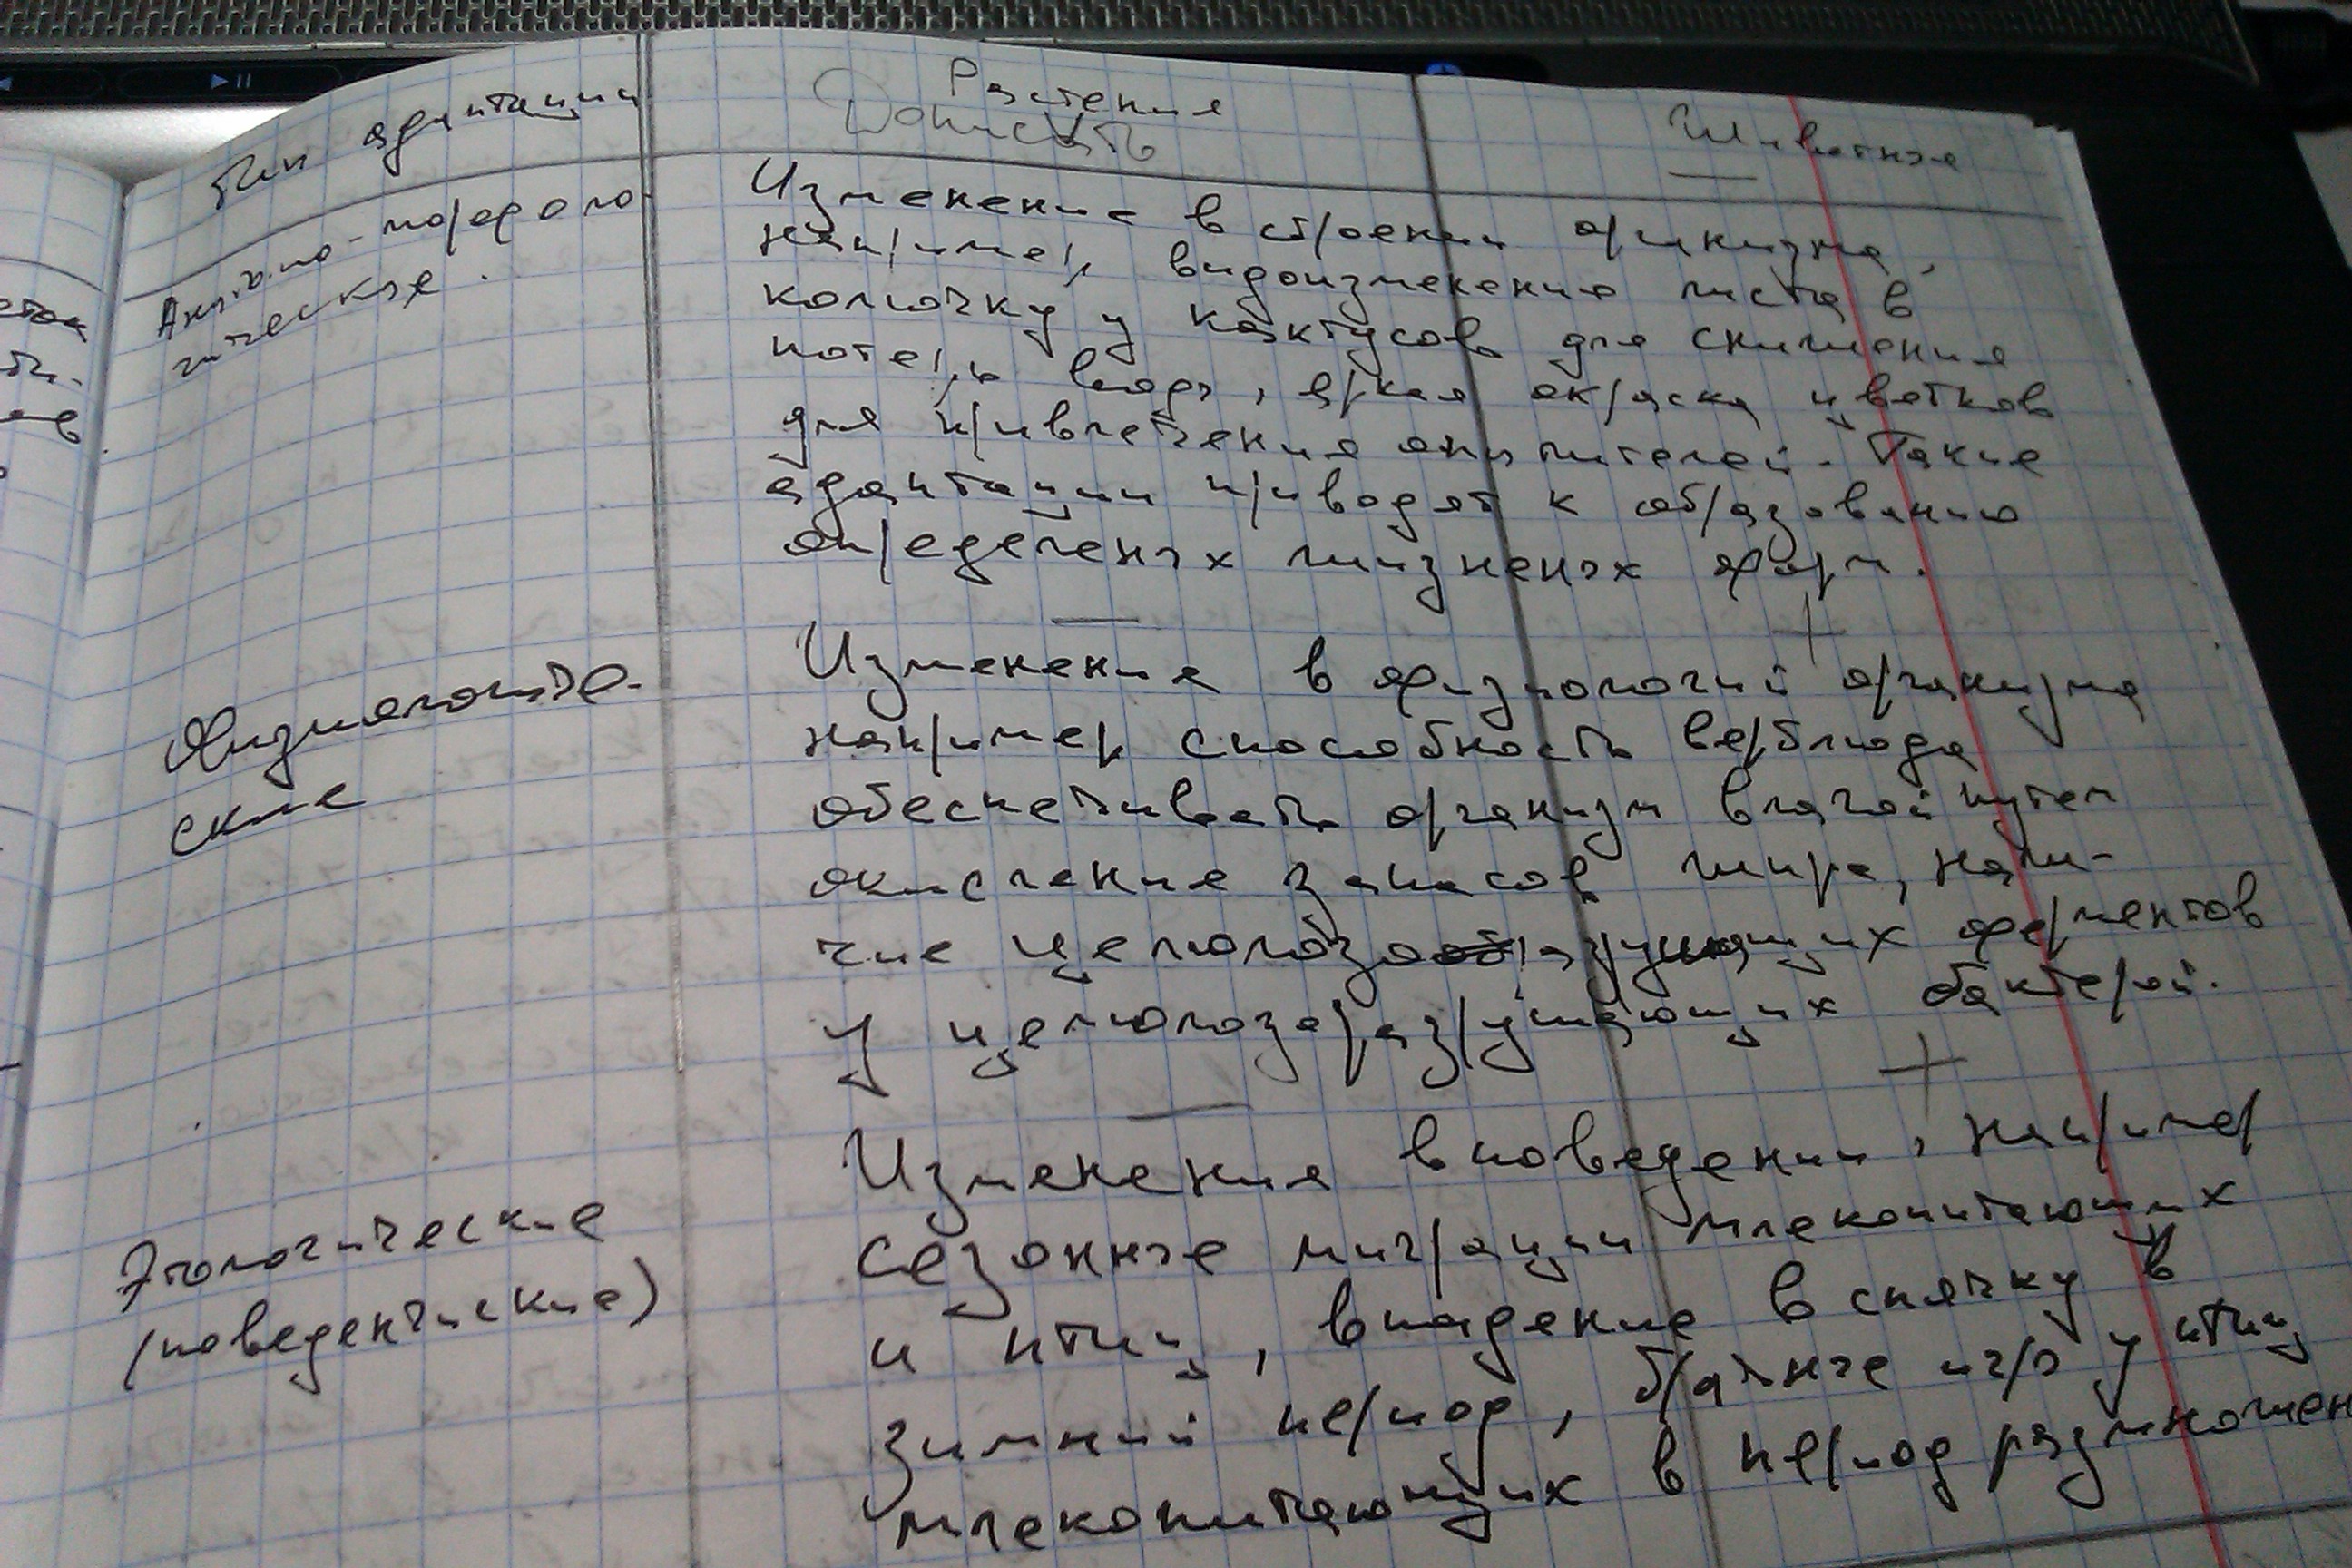 Тип адаптации
Растения
Дописать
Животные
Анатомо-морфоло-
гические.
Изменение в строении организма,
например, видоизменение листа в
колючку у кактусов для снижения
потерь воды, яркая окраска цветков
для привлечения опылителей. Такие
адаптации приводят к образованию
определеных жизненых форм.
— +
Физиологиче-
ские
Изменения в физиологий организма
например способность верблюда
обеспечивать организм влагой путем
окисление запасов жира, нали-
чие целюлозоразрушающих ферментов
у целюлозаразрушающих бактерей.
— +
Этологические
(поведенчиские)
Изменения в поведении, например
сезонные миграции млекопитающих
и птиц, впадение в спячку в
зимний период, брачные игры у птиц
млекопитающих в период размножен
еток
ти-
ов